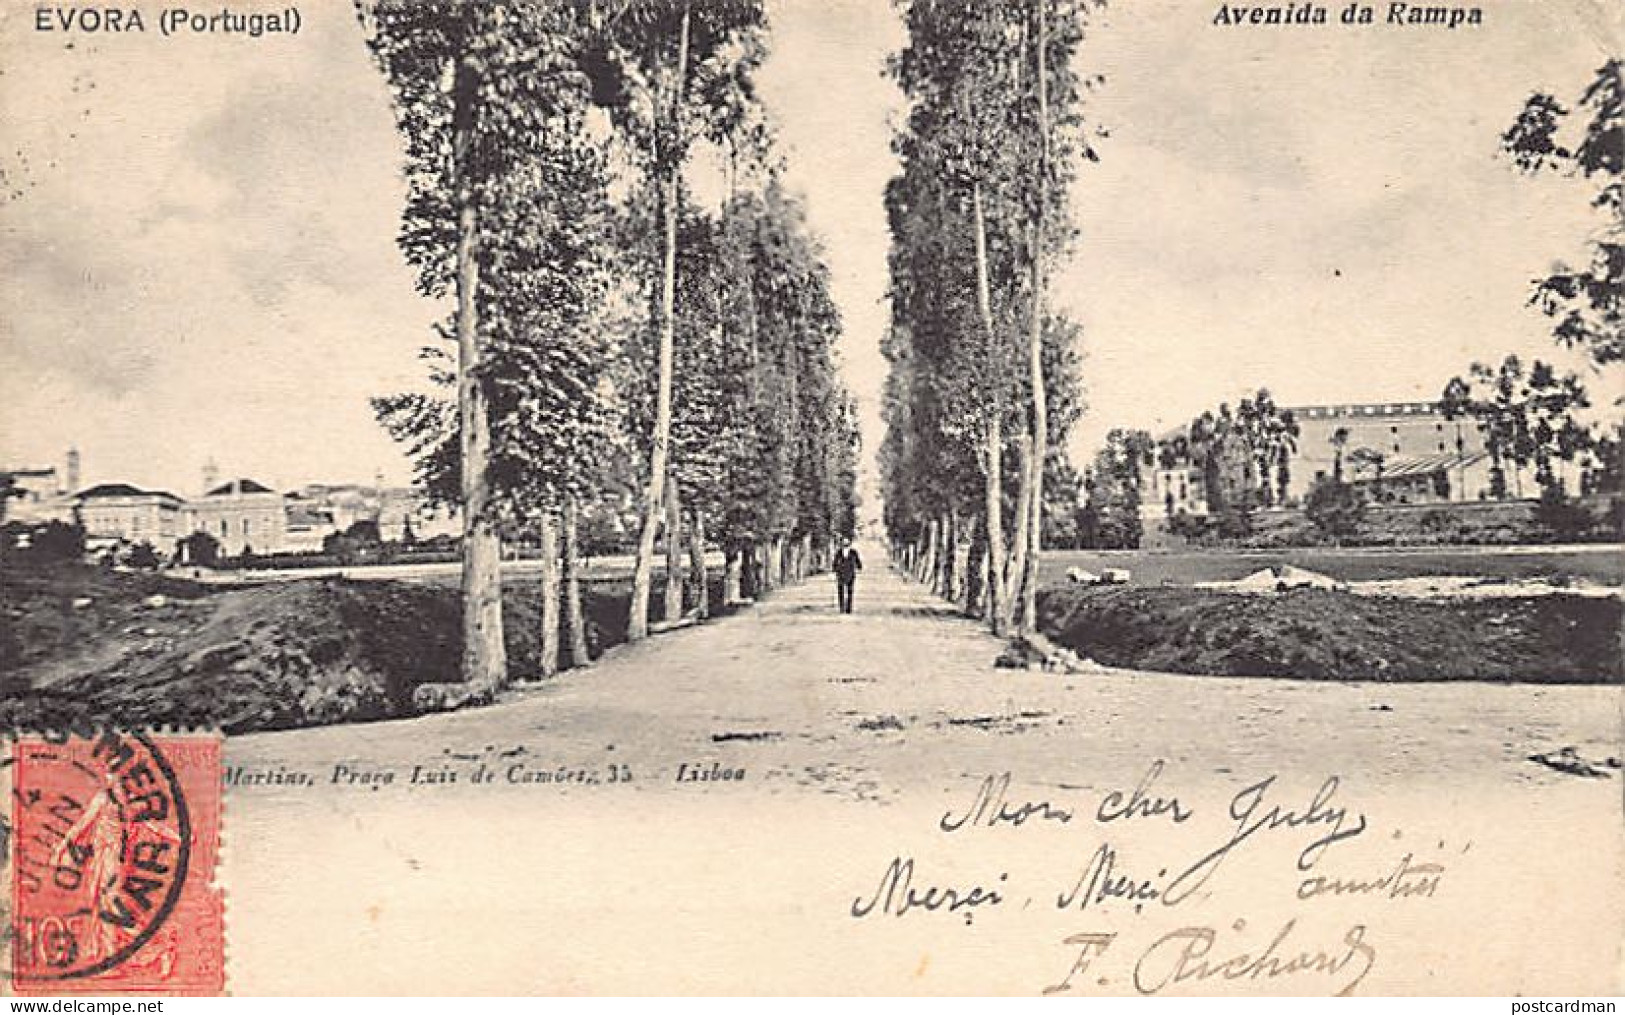 EVORA (Portugal)
Avenida da Rampa
Martins, Praça Luis de Camões, 35 Lisboa
Mon cher July
Merçi, Merçi, amitiés
F. Richard
MER
VAR
4
JUIN
04
10c
postcardman